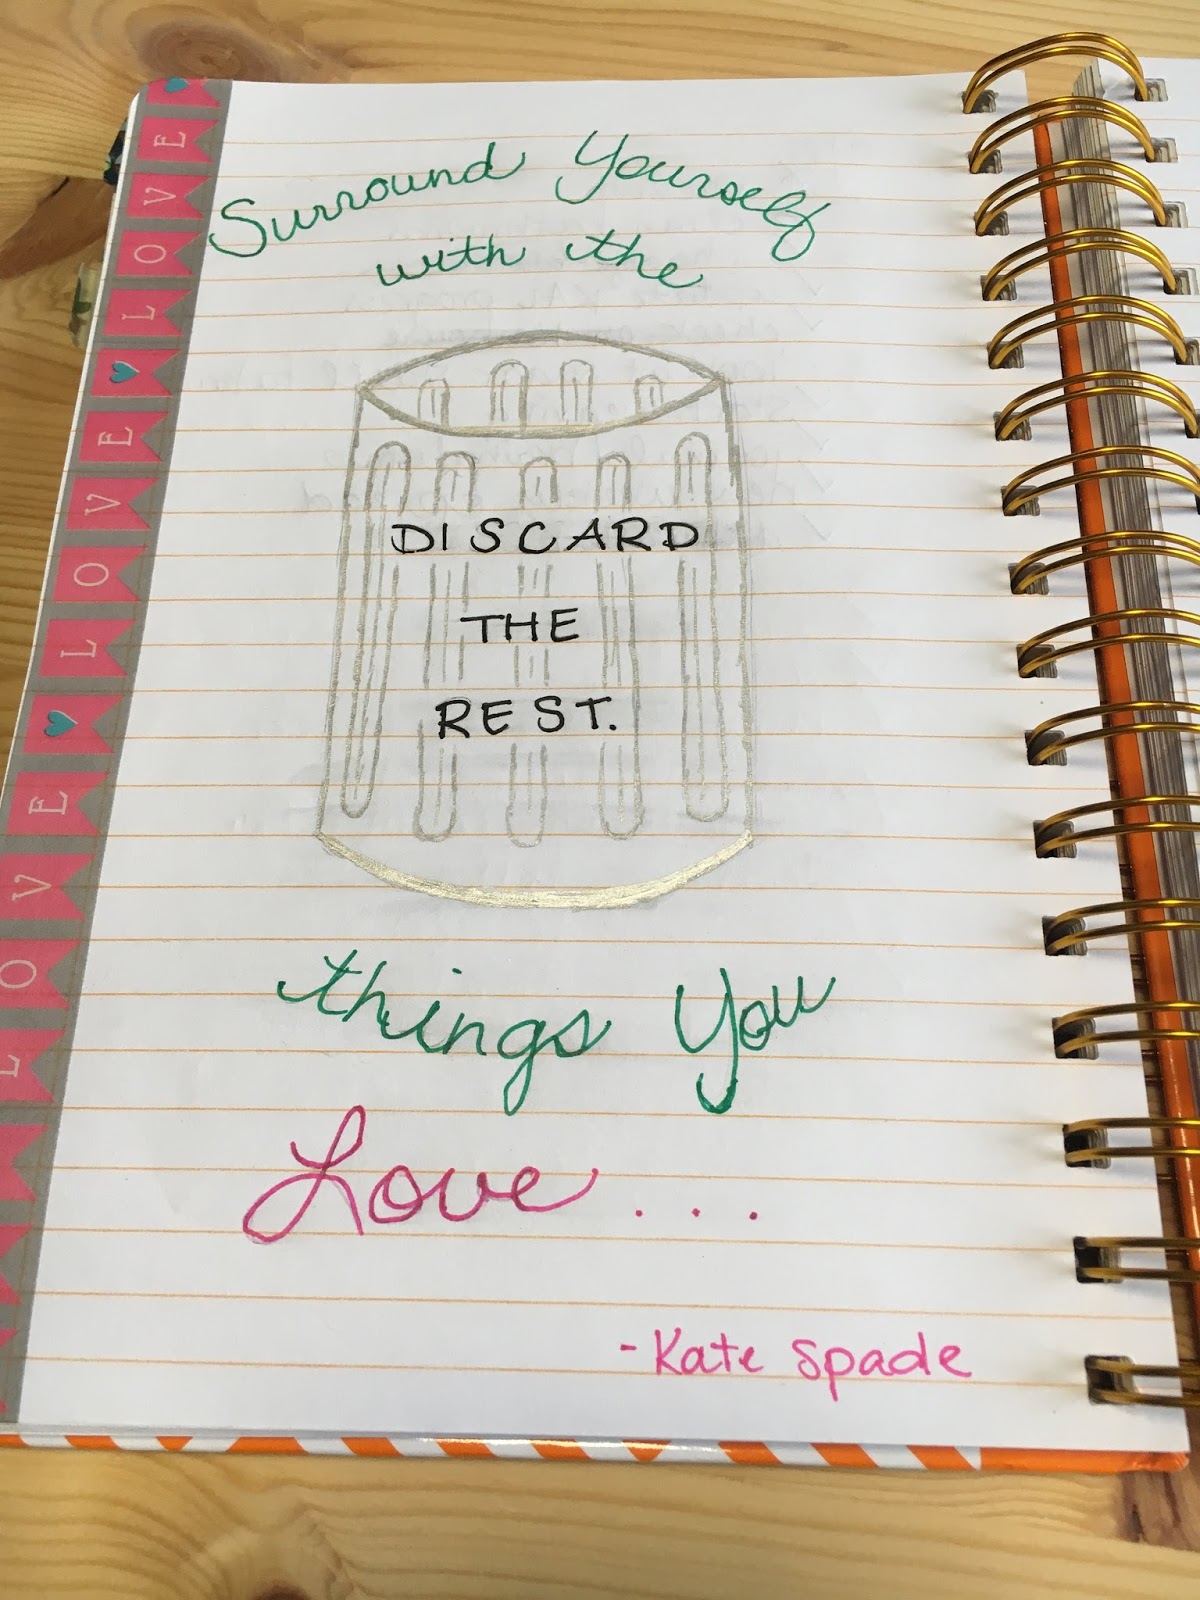 Surround Yourself
with the
DISCARD
THE
REST.
things You
Love...
- Kate Spade
LOVE
LOVE
LOVE